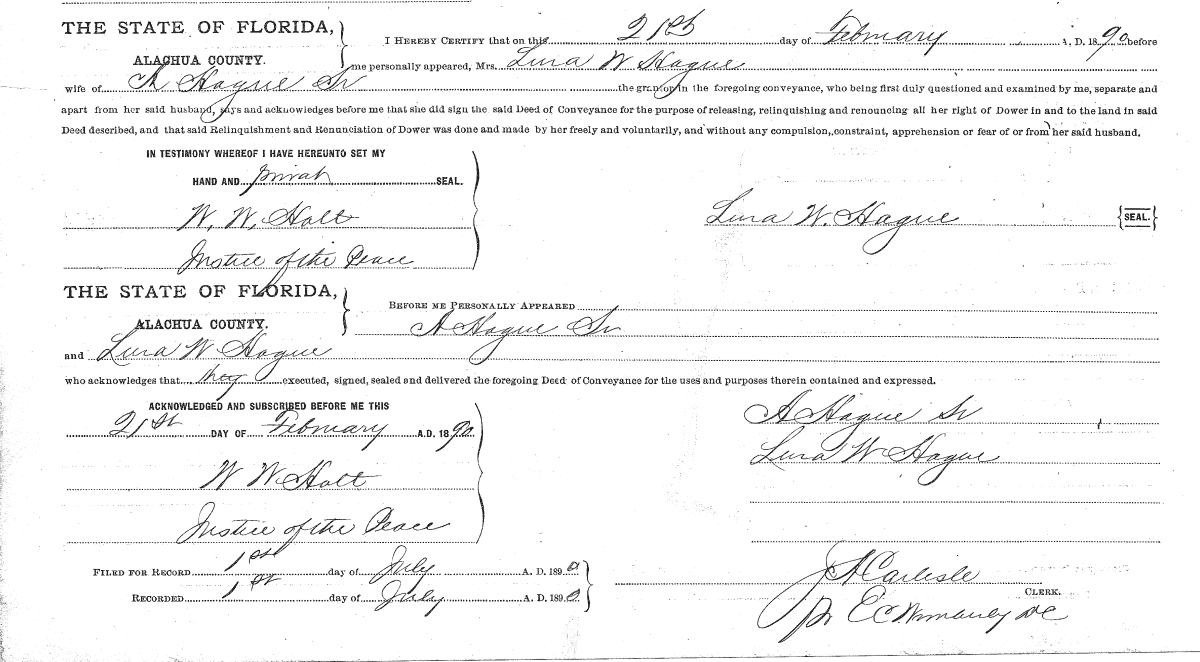 THE STATE OF FLORIDA,
ALACHUA COUNTY.
I HEREBY CERTIFY that on this 21st day of February A. D. 1890 before
me personally appeared, Mrs. Lura W Hague
wife of A Hague Sr the grantor in the foregoing conveyance, who being first duly questioned and examined by me, separate and
apart from her said husband, says and acknowledges before me that she did sign the said Deed of Conveyance for the purpose of releasing, relinquishing and renouncing all her right of Dower in and to the land in said
Deed described, and that said Relinquishment and Renunciation of Dower was done and made by her freely and voluntarily, and without any compulsion, constraint, apprehension or fear of or from her said husband.
IN TESTIMONY WHEREOF I HAVE HEREUNTO SET MY
HAND AND privat SEAL.
W. W. Holt
Lura W. Hague {SEAL.}
Justice of the Peace
THE STATE OF FLORIDA,
ALACHUA COUNTY.
BEFORE ME PERSONALLY APPEARED
A Hague Sr
and Lura W Hague
who acknowledges that they executed, signed, sealed and delivered the foregoing Deed of Conveyance for the uses and purposes therein contained and expressed.
ACKNOWLEDGED AND SUBSCRIBED BEFORE ME THIS
21st DAY OF February A.D. 1890
A Hague Sr
Lura W Hague
W W Holt
Justice of the Peace
FILED FOR RECORD 1st day of July A. D. 1890
RECORDED 1st day of July A. D. 1890
J A Carlisle
CLERK.
pr E C Wimberly DC